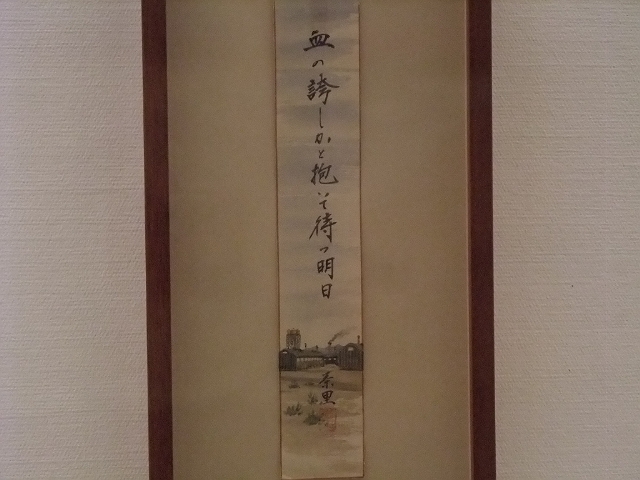 血の誇しかと抱いて待つ明日
茶里